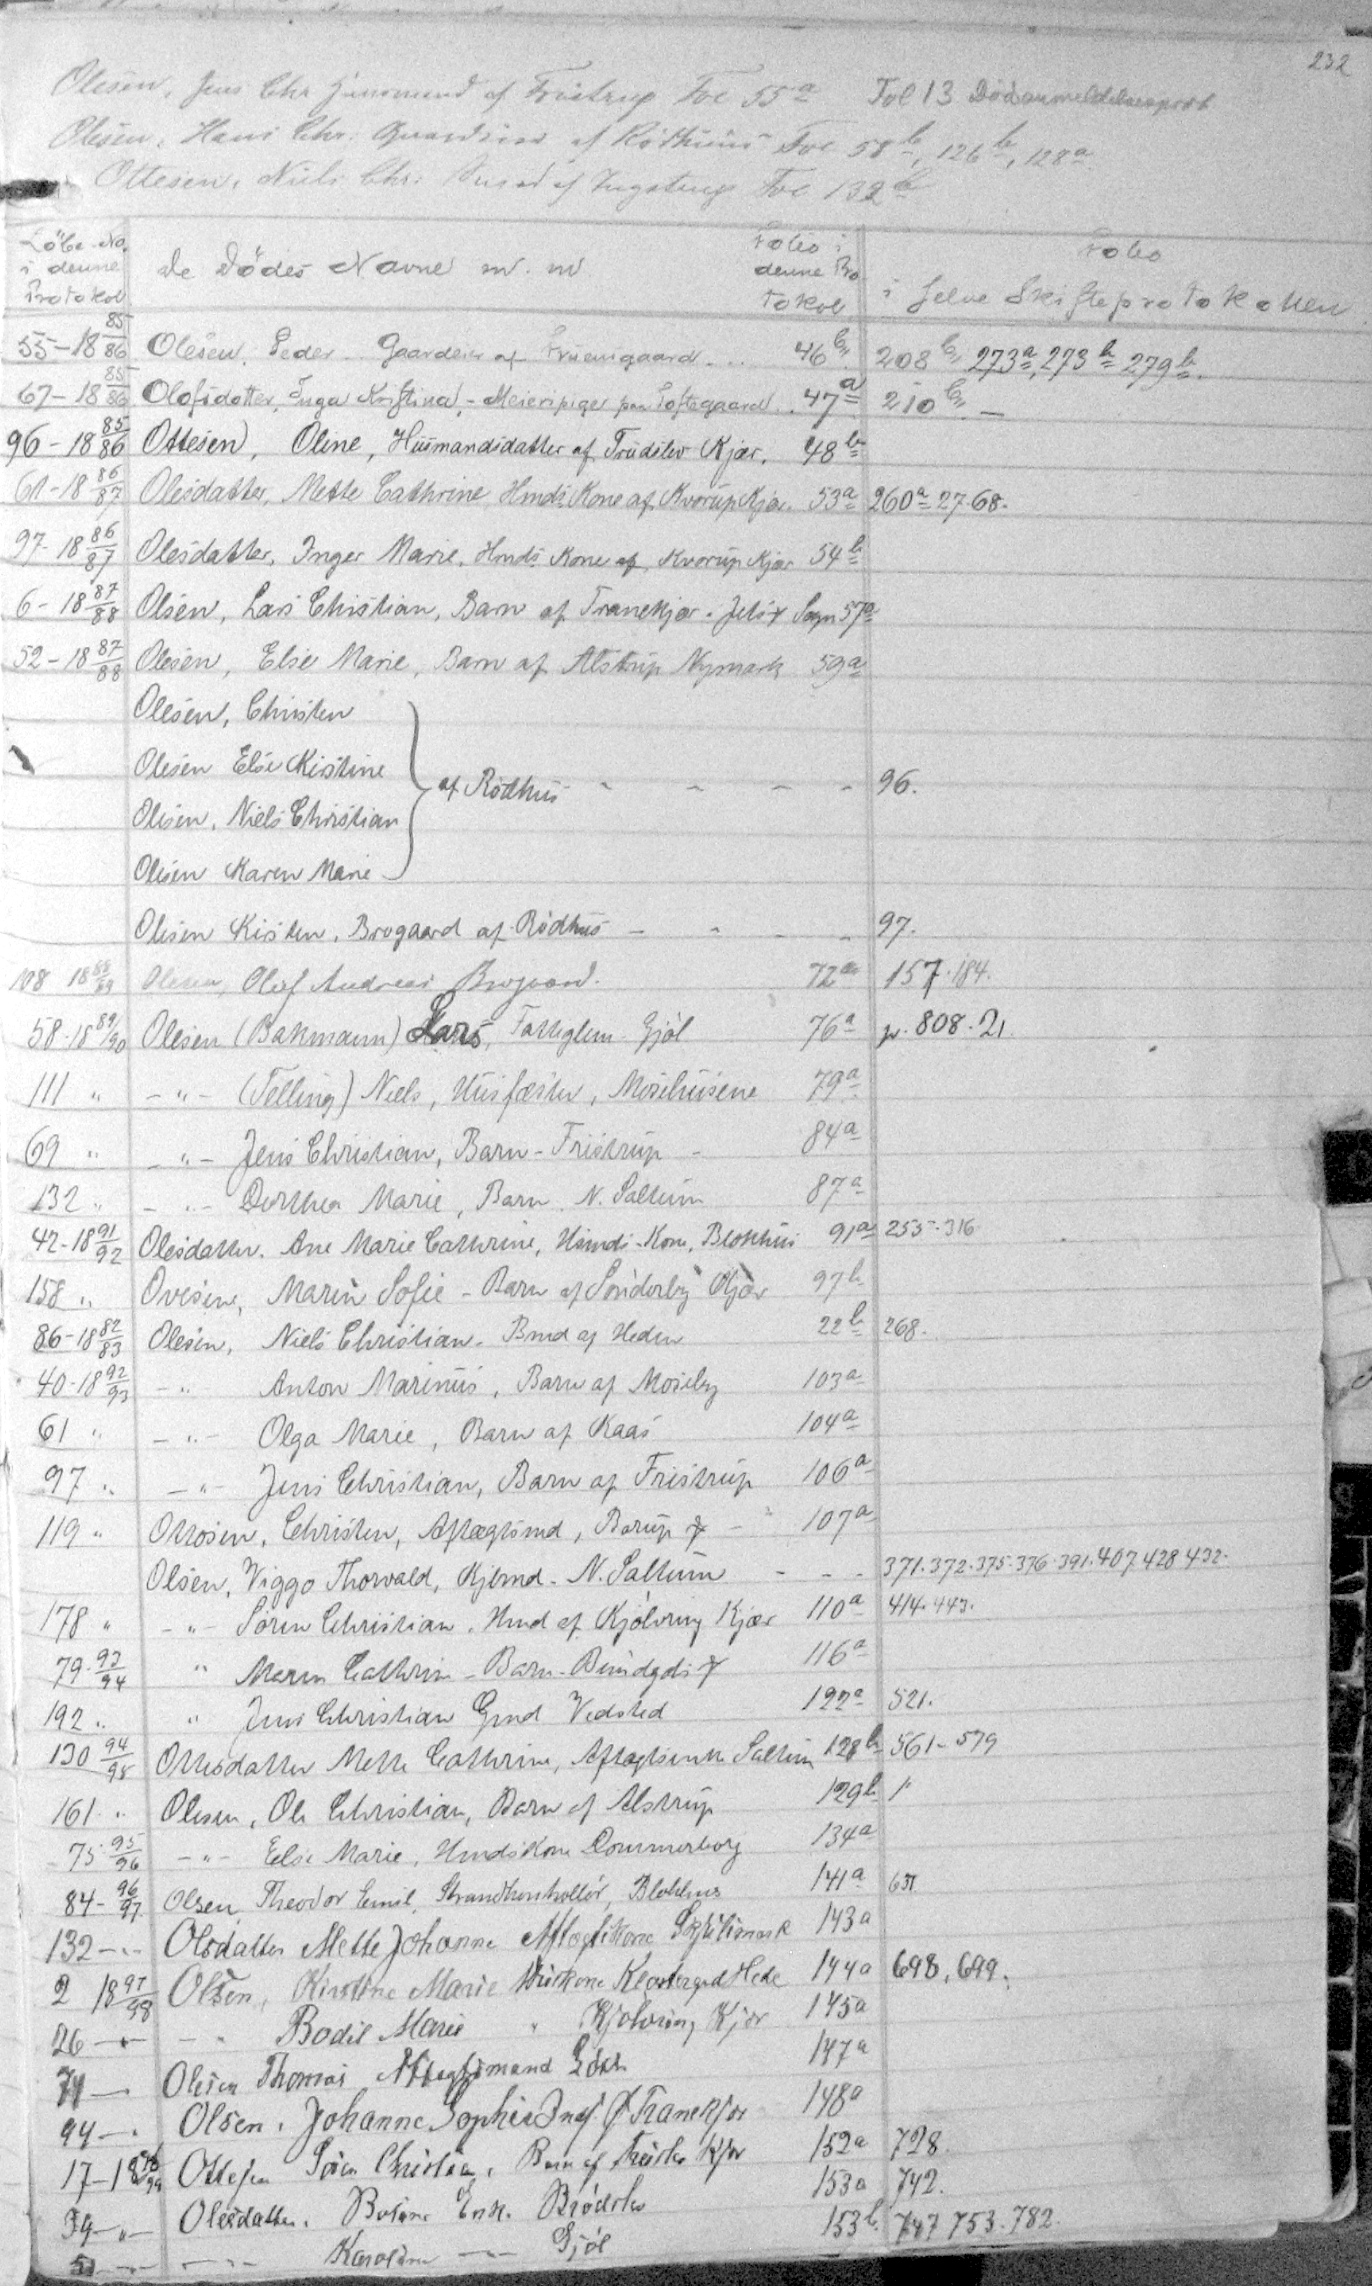 232
Olesen, Jens Chr. af Fristrup Fol 55a Fol 13
Olesen, Hans Chr. af Rödhus Fol 58b, 126b, 128a
Ottesen, Niels Chr: af Ingstrup Fol 132b
Löbe-No. i denne Protokol De Dödes Navne m. m Folio i denne Protokol Folio i selve Skifteprotokollen
55-18 85/86 Olesen, Peder - Gaardeier af Fruensgaard 46b 208b, 273a, 273b 279b
67-18 85/86 Olofsdotter, Inga Kristina, - Meieripige paa Toftegaard 47a 210b
96-18 85/86 Ottesen, Oline, Husmandsdatter af Trudslev Kjær. 48b
61-18 86/87 Olesdatter, Mette Cathrine Hmds Kone af Kvorup Kjær. 53a 260a 27.68.
97-18 86/87 Olesdatter, Inger Marie, Hmds Kone af Kvorup Kjær 54b
6-18 87/88 Olsen, Lars Christian, Barn af Tranekjær. Jetsm Sogn 57a
52-18 87/88 Olesen, Else Marie, Barn af Alstrup Nymark 59a
Olesen, Christen
Olesen Else Kirstine
af Rödhus - - - - 96.
Olesen, Niels Christian
Olesen Karen Marie
Olesen Kirsten, Brogaard af Rödhus - - - - 97.
108 18 88/89 Olesen, Olef Andreas Brogaard. 72a 157.184.
58-18 89/90 Olesen (Bakmann) Lars, Fattiglem Gjöl 76a p. 808.21.
111 " - " - (Telling) Niels, Husfæster, Mosehusene 79a
69 " - " - Jens Christian, Barn - Fristrup - 84a
132 " - " - Dorthea Marie, Barn N. Saltum 87a
42-18 91/92 Olesdatter. Ane Marie Cathrine, Hsmds Kone, Blokhus 91a 255-316
158 " Ovesen, Maren Sofie - Barn af Sönderby Kjær 97b
86-18 82/83 Olesen, Niels Christian - Bmd af Heden 22b 268.
40-18 92/93 - " Anton Marinus, Barn af Moseby 103a
61 " - " - Olga Marie, Barn af Kaas 104a
97 " - " - Jens Christian, Barn af Fristrup 106a
119 " Ottosen, Christen, Aftægtsmd, Barup - 107a
Olsen, Viggo Thorvald, Kjbmd - N. Saltum - - - 371.372.375.376.391.407.428.432.
178 " - " - Sören Christian, Hmd af Kjölvring Kjær 110a 414.443.
79 93/94 " Maren Cathrin - Barn - 116a
192 " " Jens Christian Gmd Vedsted 122a 521.
130 94/95 Ottesdatter Mette Cathrine, Aftægtsenke Saltum 128b 561-579
161 " Olesen, Ole Christian, Barn af Alstrup 129b 1
75 95/96 - " - Else Marie, Hmdskone Dommerborg 134a
84-96/97 Olsen Theodor Emil, Blokhus 141a 631
132 - " - Olsdatter Mette Johanne Aftægtskone 143a
2 18 97/98 Olsen, Kirstine Marie Huskone Klostergaard Hede 144a 698, 699.
26 - " - - " Bodil Marie " Kjölvring Kjær 145a
71 - Olesen Thomas Aftægtsmand 147a
94 - Olsen, Johanne Sophie Tranekjær 148a
17-18 98/99 Ottesen Sören Christian, Barn af Kjær 152a 728.
34 - " - Olesdatter, Enke. 153a 742.
- " - - " - Karoline - " - Gjöl 153b 747 753.782